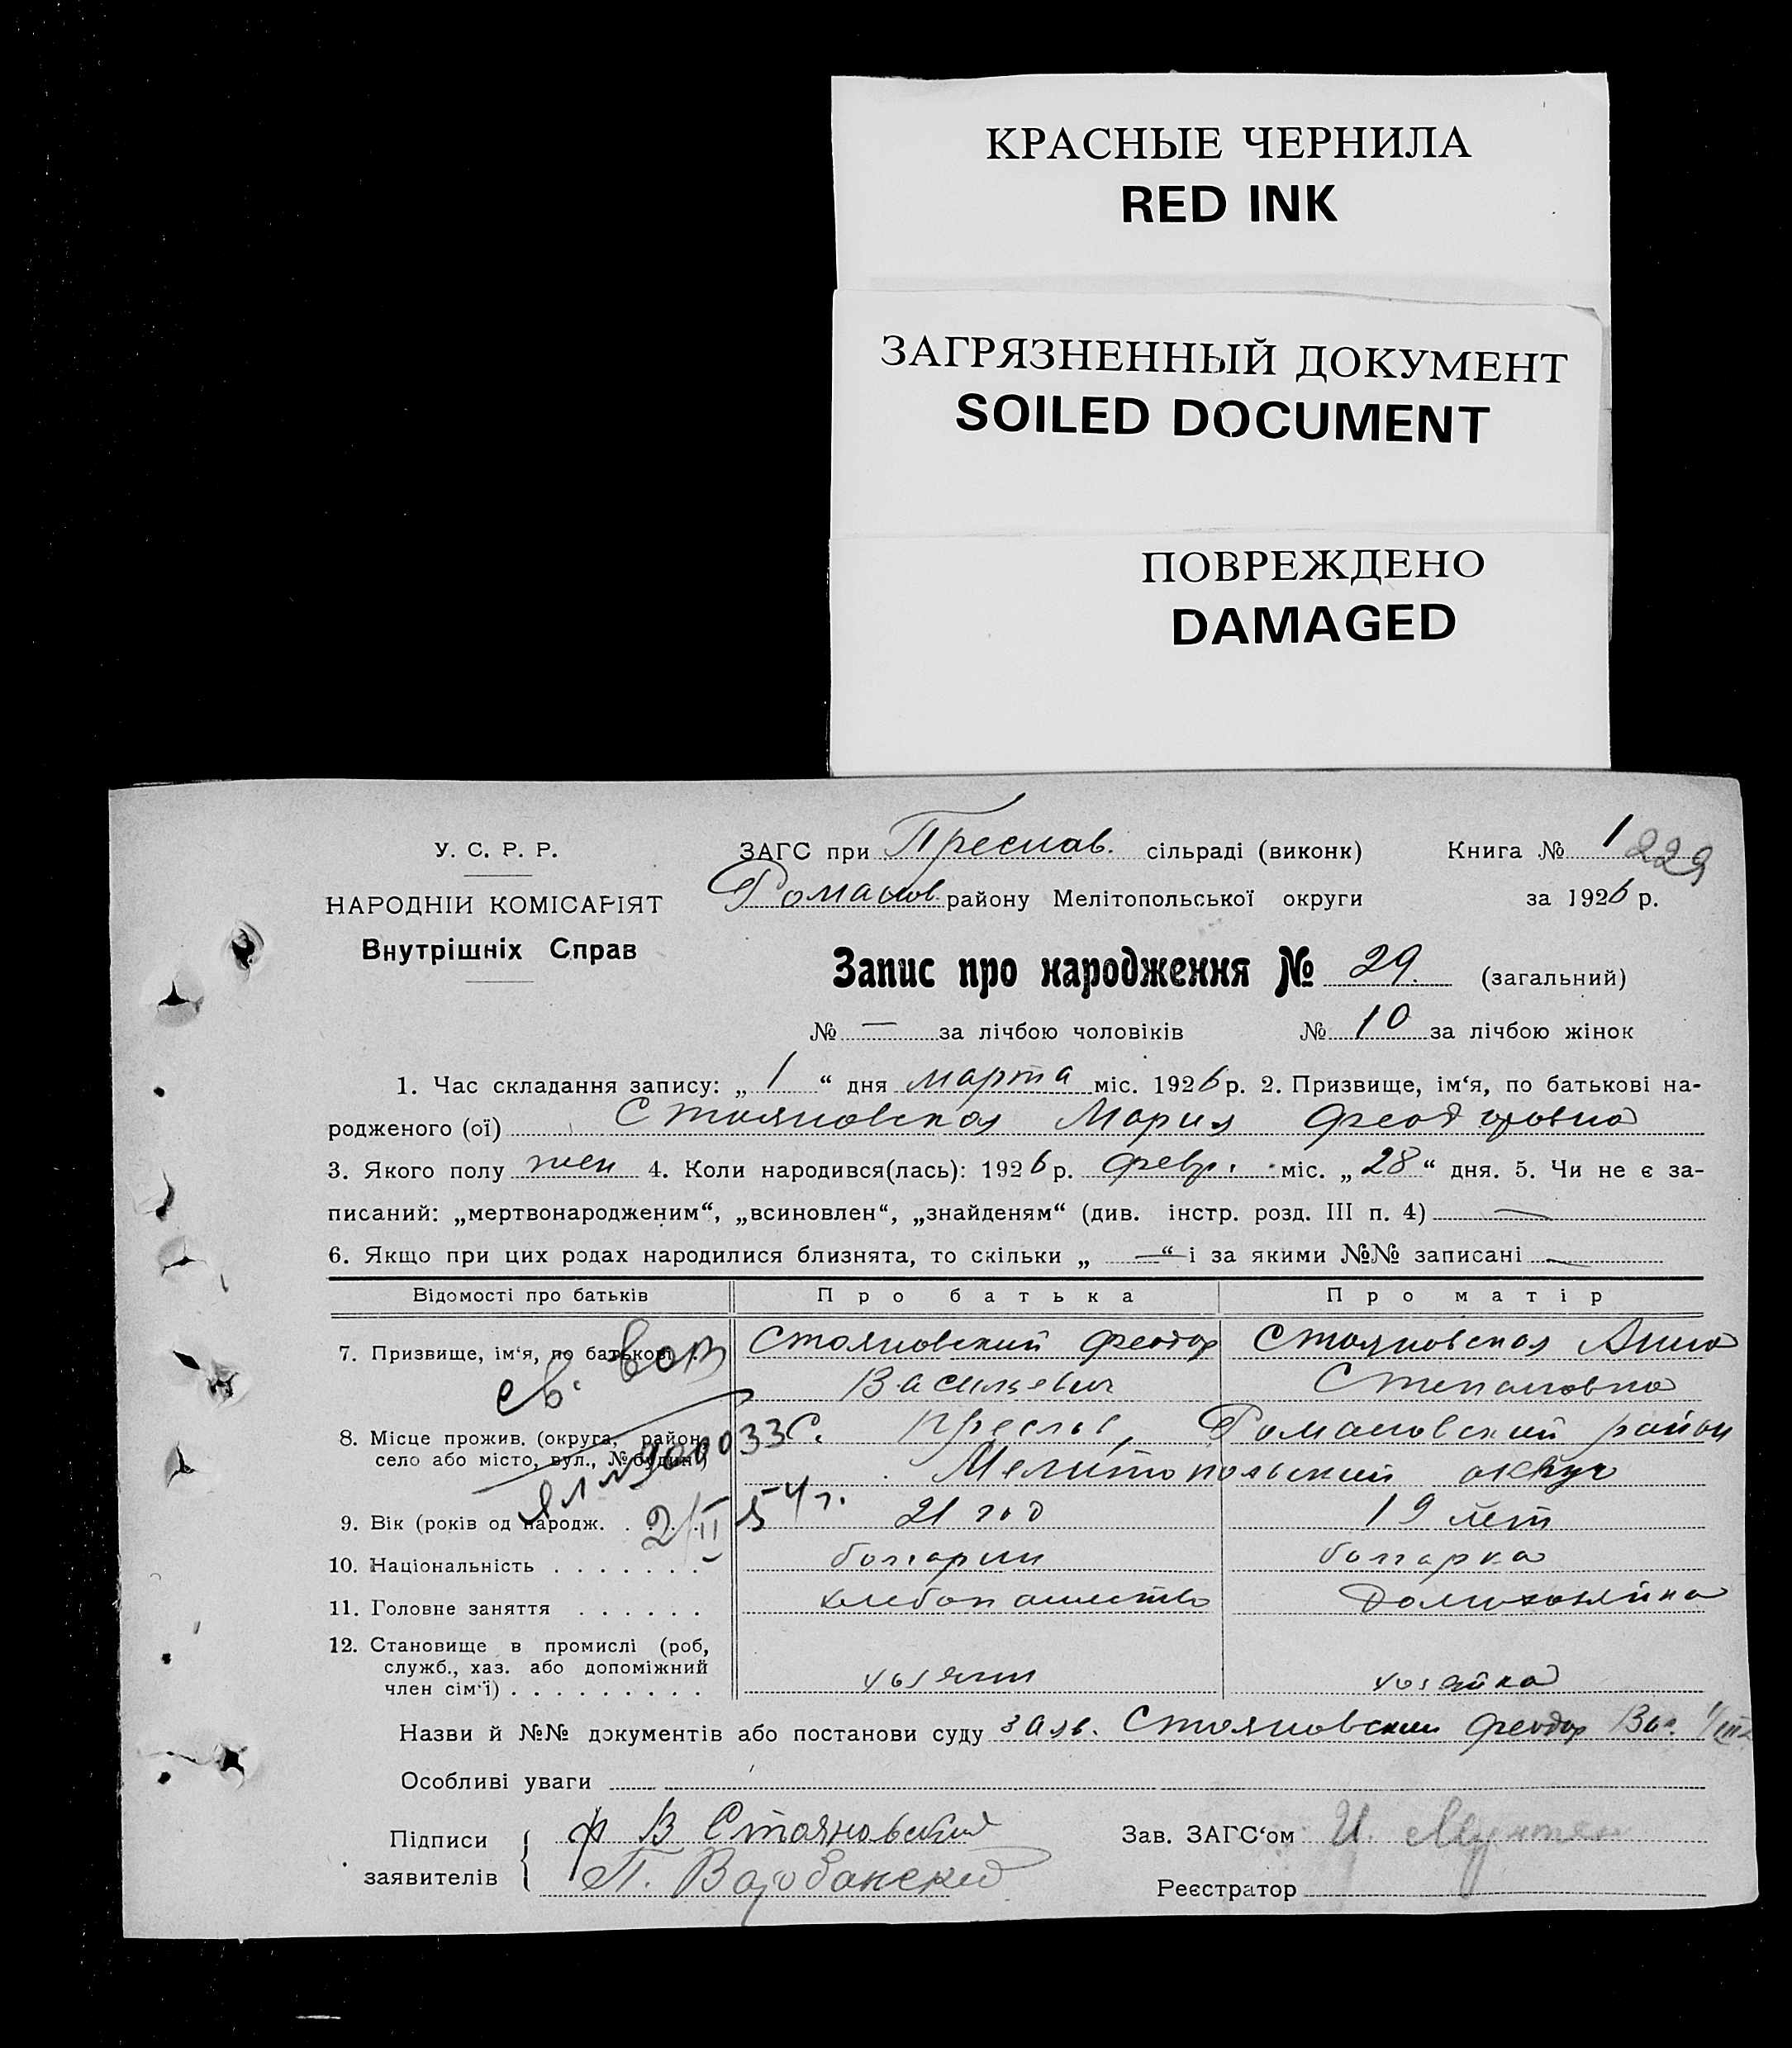 КРАСНЫЕ ЧЕРНИЛА
RED INK
ЗАГРЯЗНЕННЫЙ ДОКУМЕНТ
SOILED DOCUMENT
ПОВРЕЖДЕНО
DAMAGED
У. С. Р. Р.
НАРОДНІЙ КОМІСАРІЯТ
Внутрішніх Справ
ЗАГС при Преслав. сільраді (виконк) Книга № 1 229
Романов. району Мелітопольської округи за 1926 р.
Запис про народження № 29. (загальний)
№ — за лічбою чоловіків № 10 за лічбою жінок
1. Час складання запису: „ 1 “ дня марта міс. 1926 р. 2. Призвище, ім‘я, по батькові на-
родженого (ої) Стояновская Мария Феодоровна
3. Якого полу жен 4. Коли народився(лась): 1926 р. февр. міс. „28“ дня. 5. Чи не є за-
писаний: „мертвонародженим“, „всиновлен“, „знайденям“ (див. інстр. розд. III п. 4) —
6. Якщо при цих родах народилися близнята, то скільки „ — “ і за якими №№ записані —
Відомості про батьків Про батька Про матір
7. Призвище, ім‘я, по батькові . Стояновский Феодор Стояновская Анна
св. выд Васильевич Степановна
8. Місце прожив. (округа, район, село або місто, вул., № будин.) С. Преслав, Романовский район
Мелитопольский округ
ЯЛ № 300033
2/II 54 г.
9. Вік (років од народж. . . 21 год 19 лет
10. Національність . . . . . . . болгарин болгарка
11. Головне заняття . . . . . . хлебопашество домохозяйка
12. Становище в промислі (роб,
служб., хаз. або допоміжний
член сім‘ї) . . . . . . . . . хозяин хозяйка
Назви й №№ документів або постанови суду заяв. Стояновский Феодор Вас. 1/III
Особливі уваги —
Підписи заявителів
Ф В Стояновский
Зав. ЗАГС‘ом И.
П.
Реєстратор